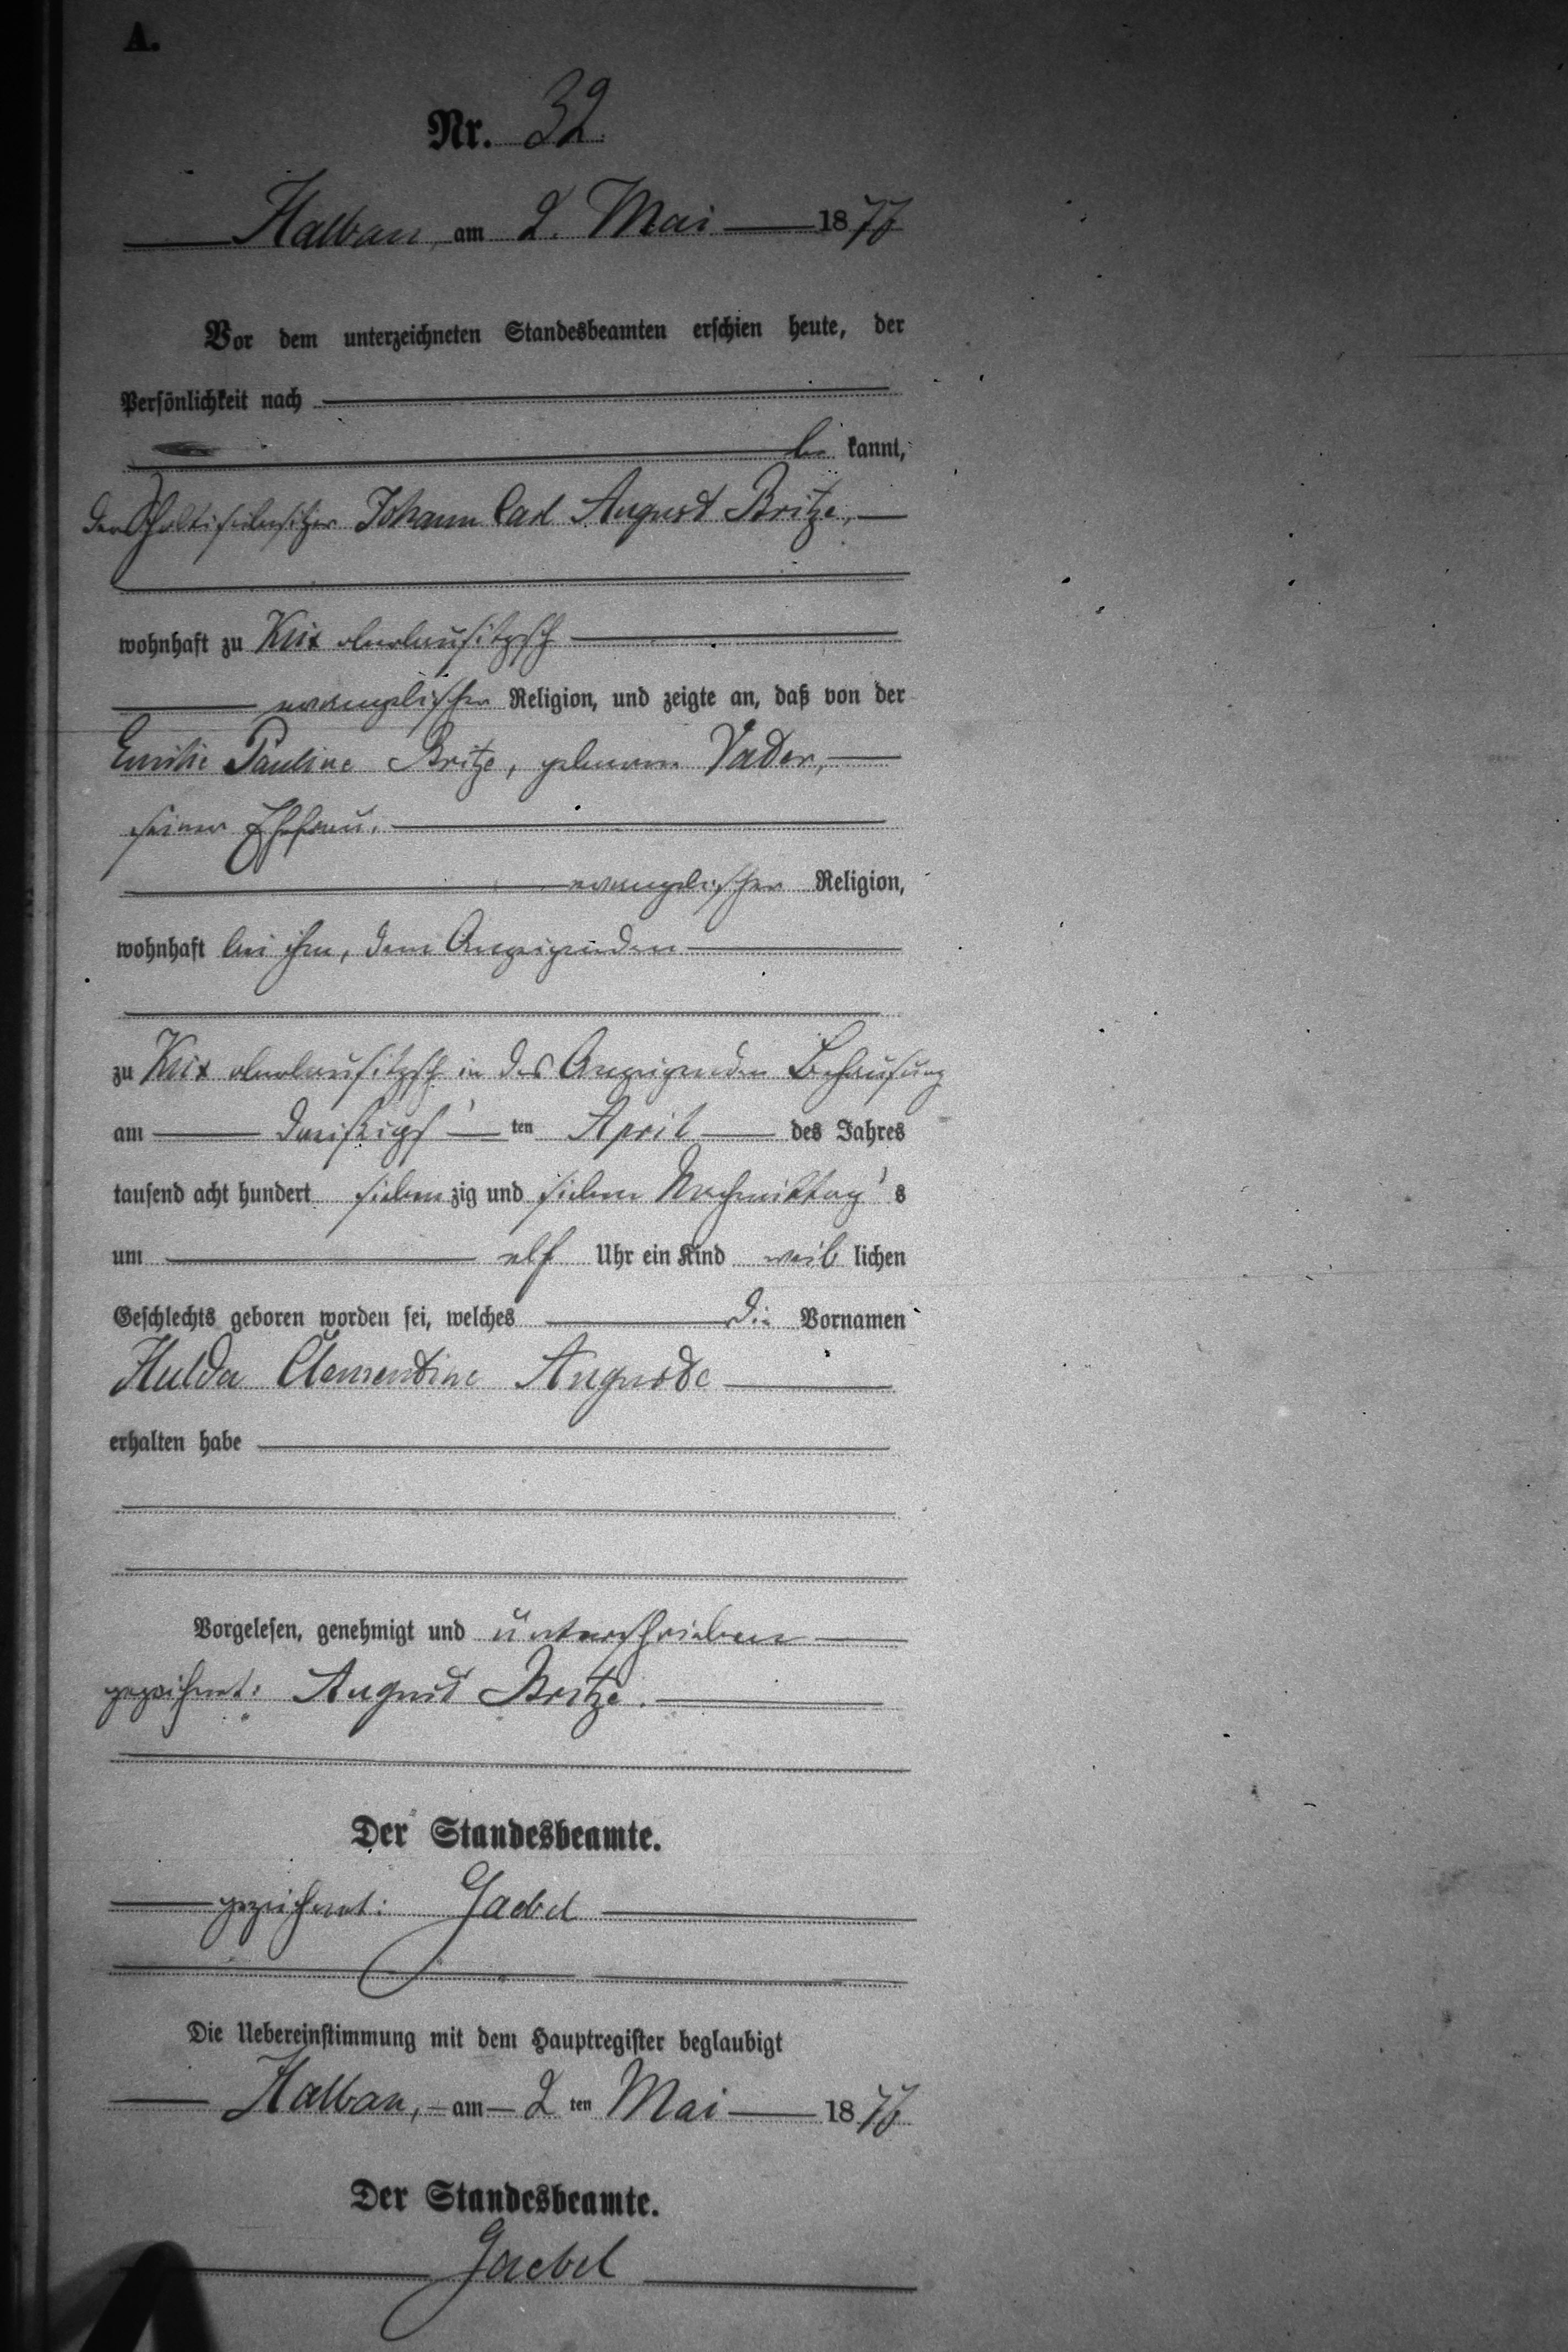 A.
Nr. 32.
Halbau, am 2. Mai 1877
Vor dem unterzeichneten Standesbeamten erschien heute, der
Persönlichkeit nach
be kannt,
der Scholtiseibesitzer Johann Carl August Britze,
wohnhaft zu Kux oberlausitzsch
evangelischer Religion, und zeigte an, daß von der
Emilie Pauline Britze, geborene Vader,
seiner Ehefrau,
evangelischer Religion,
wohnhaft bei ihm, dem Anzeigenden
zu Kux oberlausitzsch in des Anzeigenden Behausung
am dreißigs ten April des Jahres
tausend acht hundert sieben zig und sieben Nachmittag s
um elf Uhr ein Kind weib lichen
Geschlechts geboren worden sei, welches die Vornamen
Hulda Clementine Auguste
erhalten habe
Vorgelesen, genehmigt und unterschrieben
gezeichnet: August Britze.
Der Standesbeamte.
gezeichnet: Gaebel
Die Uebereinstimmung mit dem Hauptregister beglaubigt
Halbau, am 2 ten Mai 1877
Der Standesbeamte.
Gaebel